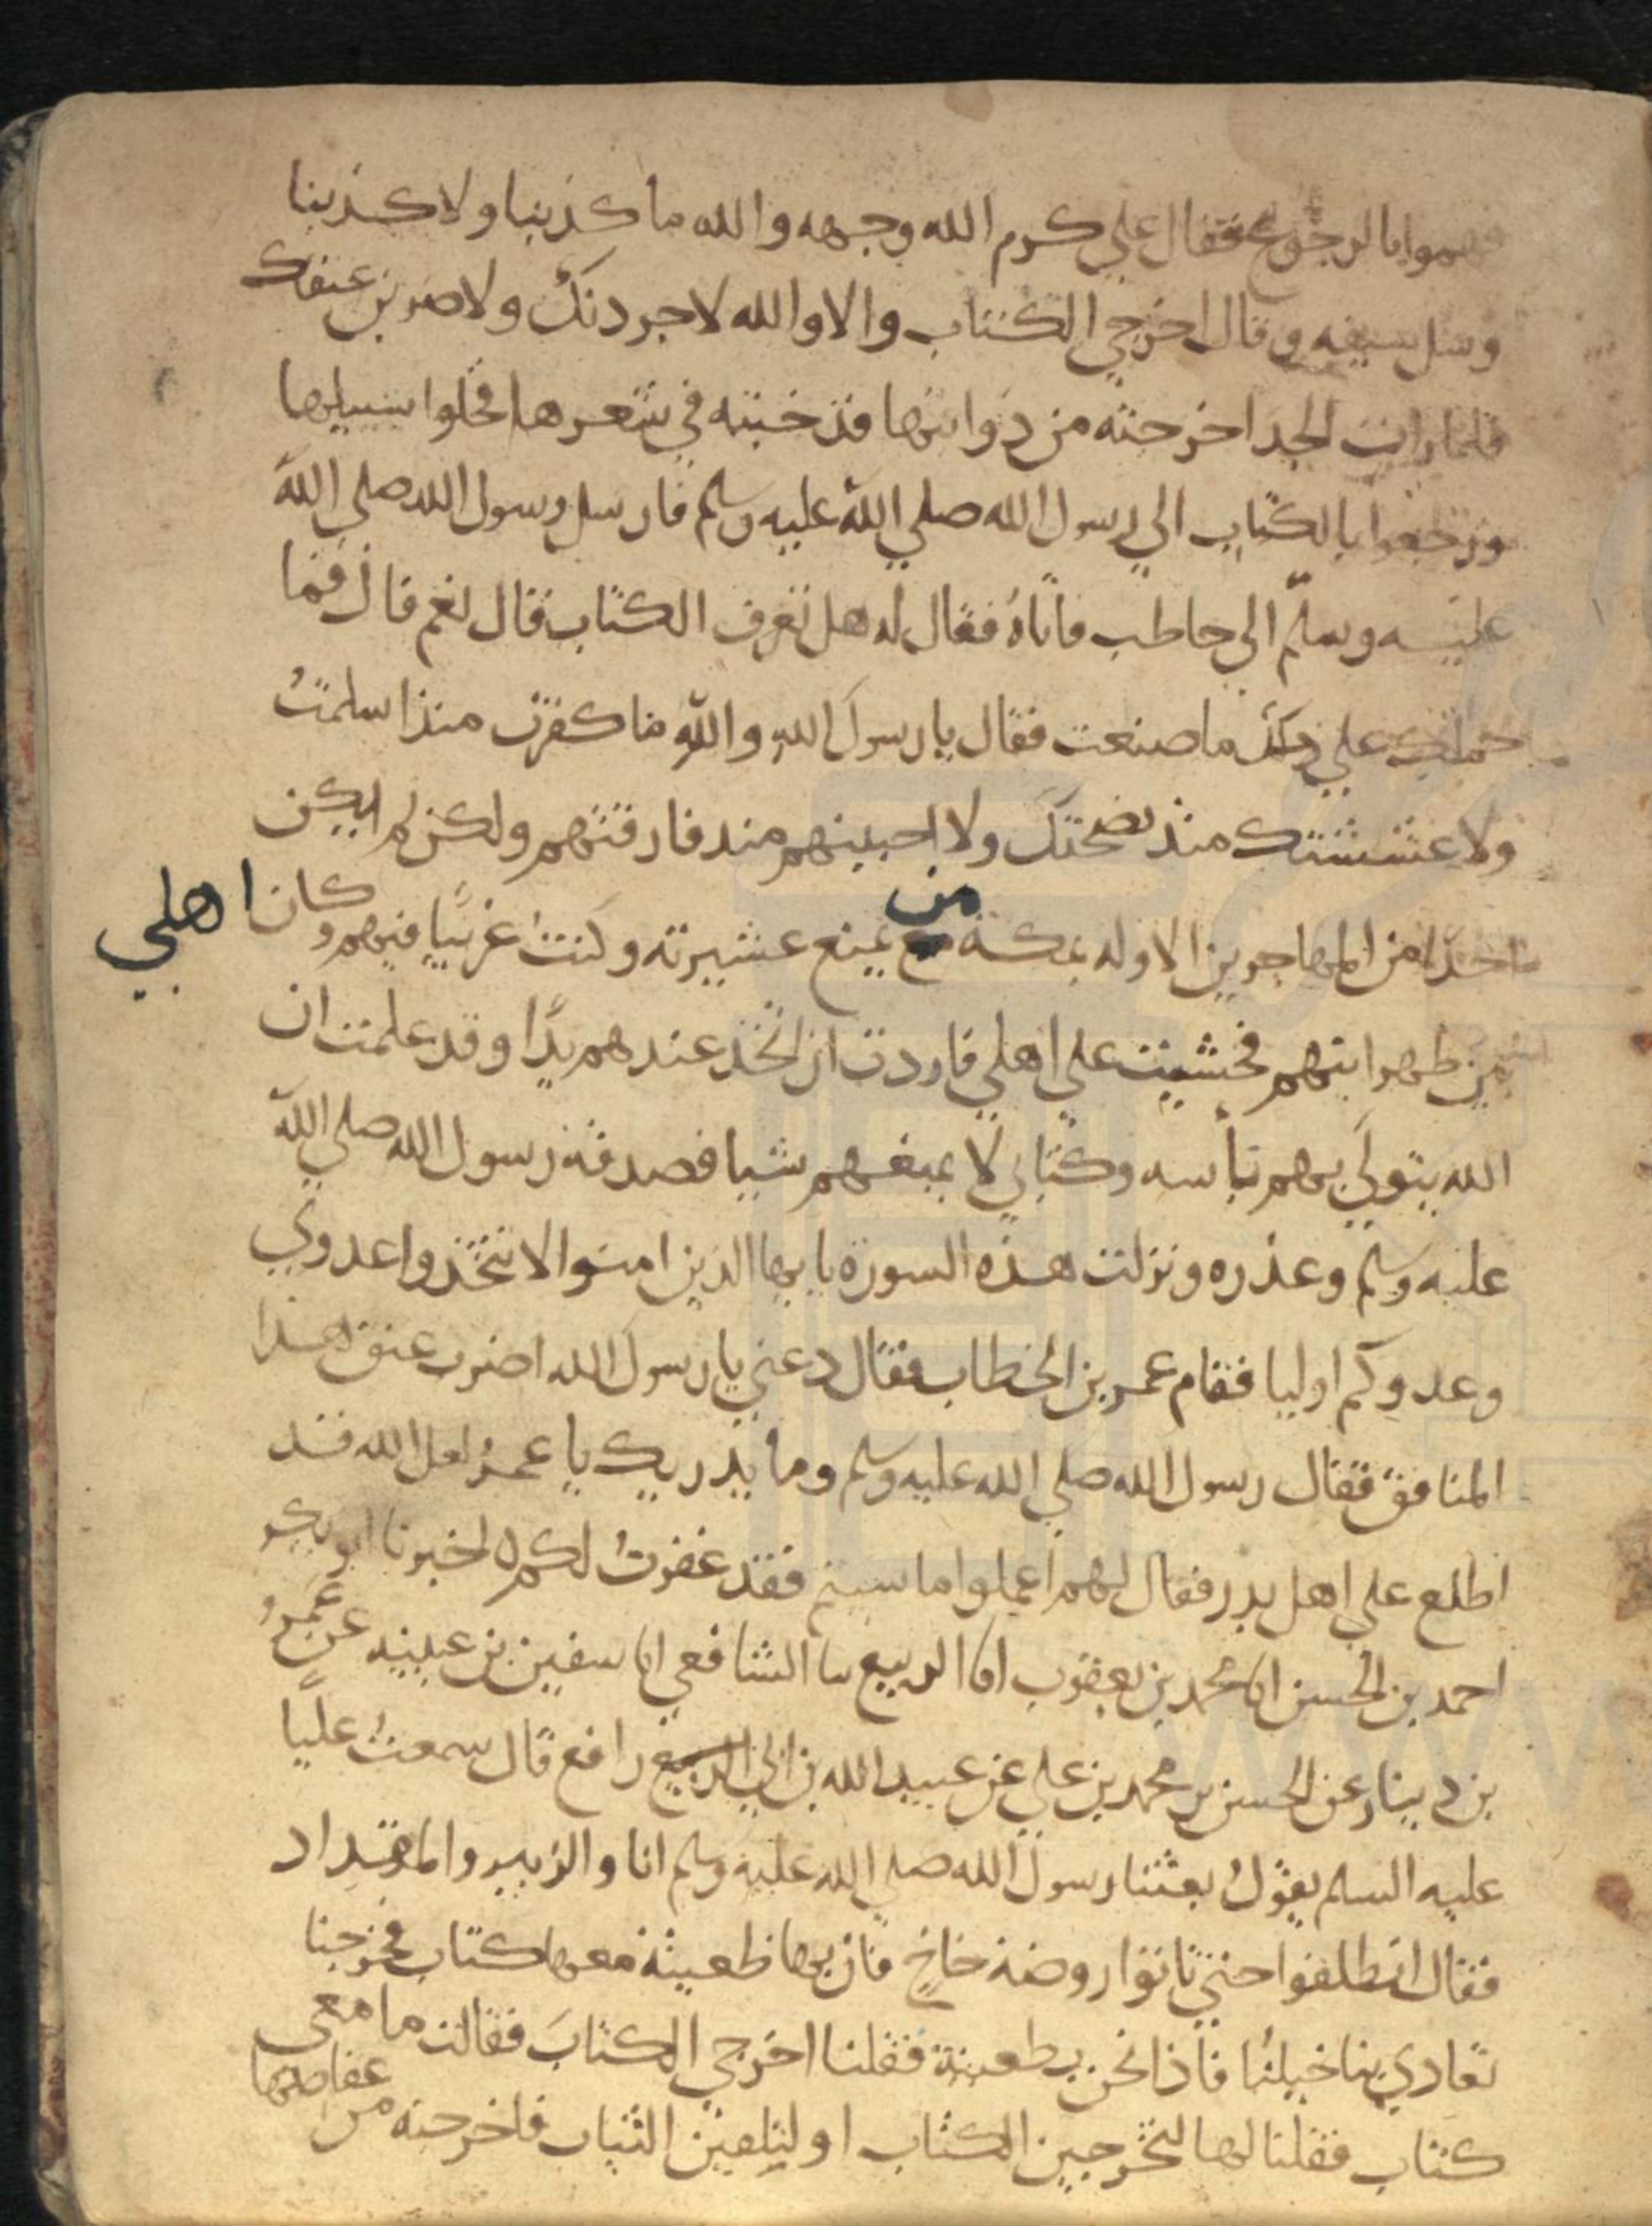 فهموا بالرجوع فقال علي كرم الله وجهه والله ما كذبنا ولا كذبنا
وسل سيفه وقال اخرجي الكتاب والا والله لاجردنك ولاضربن عنقك
فلما رات الجد اخرجته من ذوابتها قد خبته في شعرها فخلوا سبيلها
ورجعوا بالكتاب الي رسول الله صلي الله عليه وسلم فارسل رسول الله صلي الله
عليه وسلم الي حاطب فاتاه فقال له هل تعرف الكتاب قال نعم قال فما
حملك علي ما صنعت فقال يا رسول الله والله ما كفرت منذ اسلمت
ولا غششتك منذ نصحتك ولا احببتهم منذ فارقتهم ولكن لم يكن
احدا من المهاجرين الا وله بمكة من يمنع عشيرته وكنت غريبا فيهم وكان اهلي
بين ظهرانيهم فخشيت علي اهلي فاردت ان اتخذ عندهم يدا وقد علمت ان
الله يتولي بهم باسه وكتابي لا يمنعهم شيا فصدقه رسول الله صلي الله
عليه وسلم وعذره ونزلت هذه السورة يا يها الذين امنوا لا تتخذوا عدوي
وعدوكم اوليا فقام عمر بن الخطاب فقال دعني يا رسول الله اضرب عنق هذا
المنافق فقال رسول الله صلي الله عليه وسلم وما يدريك يا عمر لعل الله قد
اطلع علي اهل بدر فقال لهم اعملوا ما شيتم فقد غفرت لكم اخبرنا ابو بكر
احمد بن الحسن انا محمد بن يعقوب انا الربيع نا الشافعي انا سفين بن عيينه عن عمرو
بن دينار عن الحسن بن محمد بن علي عن عبيد الله بن ابي رافع قال سمعت عليا
عليه السلم يقول بعثنا رسول الله صلي الله عليه وسلم انا والزبير والمقداد
فقال انطلقوا حتي تاتوا روضة خاخ فان بها ظعينة معها كتاب فخرجنا
تعادي بنا خيلنا فاذا نحن بظعينة فقلنا اخرجي الكتاب فقالت ما معي
كتاب فقلنا لها لتخرجين الكتاب او لتلقين الثياب فاخرجته من عقاصها